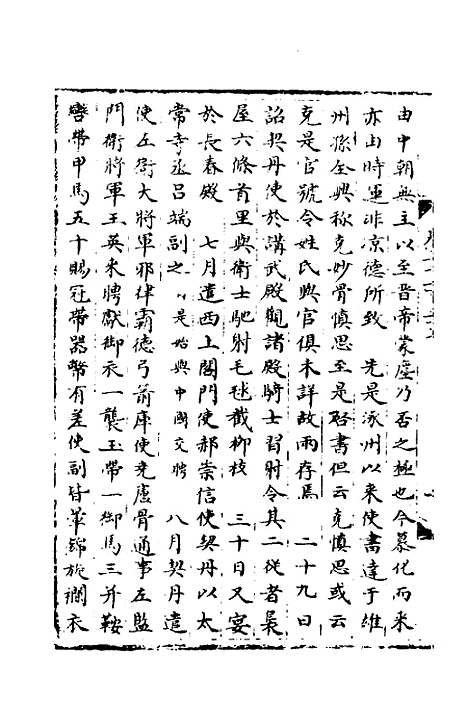 由中朝無主以至晋帝蒙塵乃否之極也今慕化而来
亦由時運非凉德所致　先是涿州以来使書達于雄
州孫全興称克妙骨慎思至是啓書但云克慎思或云
克是官號令姓氏與官俱未詳故兩存焉　二十九日
詔契丹使於講武殿觀諸殿騎士習射令其二從者裊
屋六條首里與衛士馳射毛毬截柳枝　三十日又宴
於長春殿　七月遣西上閤門使郝崇信使契丹以太
常寺丞吕端副之　是始與中國交聘　八月契丹遣
使左衛大將軍邪律霸德弓箭庫使尭盧骨通事左監
門衛將軍王英来聘獻御衣一襲玉帶一御馬三并鞍
轡帶甲馬五十賜冠帶器幣有差使副皆華錦旋襴衣